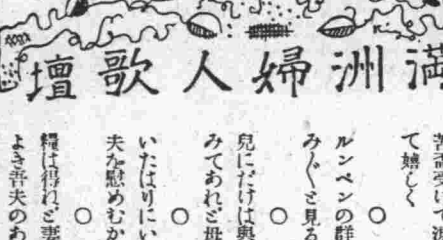 満洲婦人歌壇
て嬉しく
○
ルンペンの群
みんぐと見る
○
兒にだけは與
みてあれど母
○
いたはりにい
夫を慰めむか
○
糧は得れど妻
よき吾夫のあ